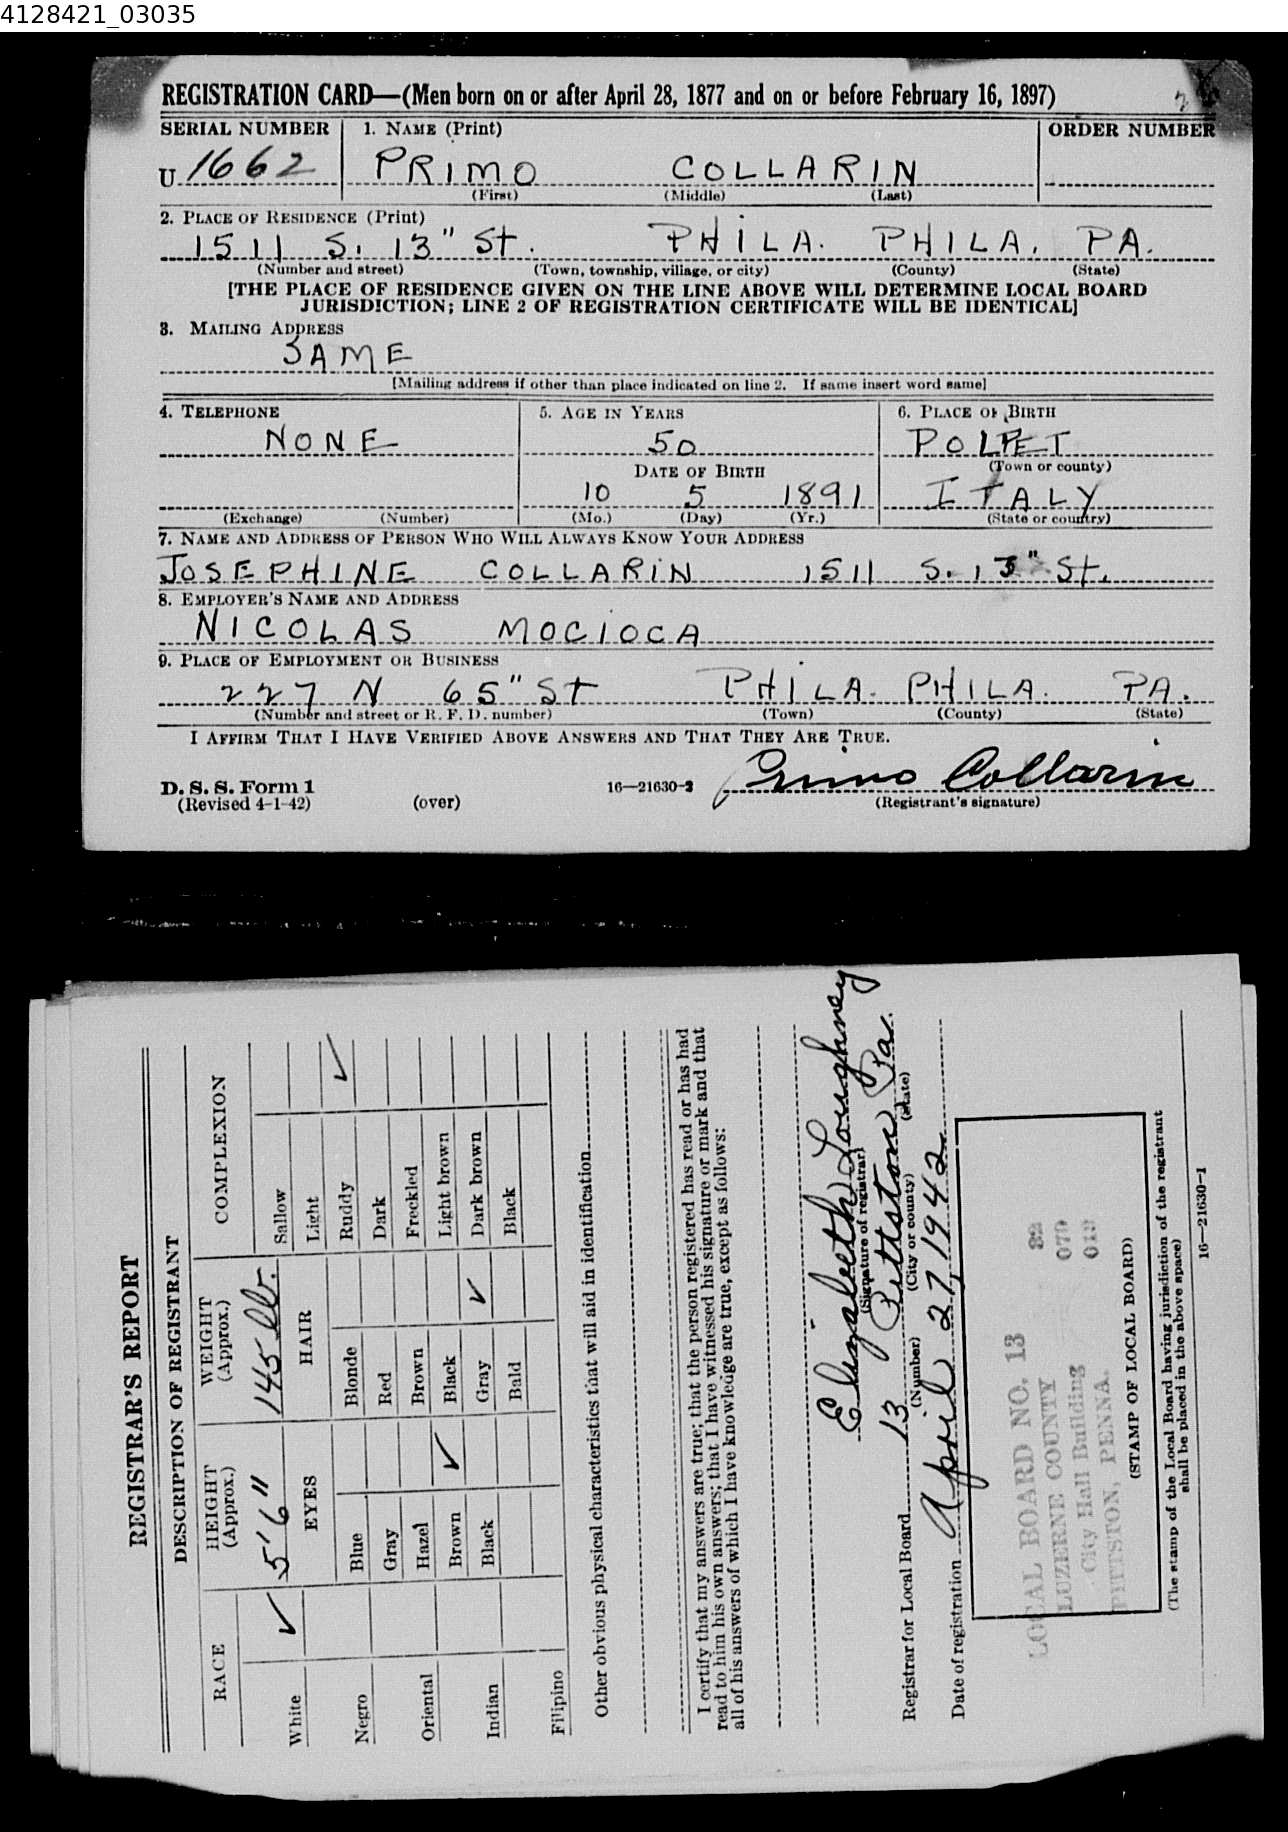 4128421_03035
REGISTRATION CARD—(Men born on or after April 28, 1877 and on or before February 16, 1897)
SERIAL NUMBER 1. NAME (Print) ORDER NUMBER
U 1662 PRIMO COLLARIN
(First) (Middle) (Last)
2. PLACE OF RESIDENCE (Print)
1511 S. 13" St. PHILA. PHILA. PA.
(Number and street) (Town, township, village, or city) (County) (State)
[THE PLACE OF RESIDENCE GIVEN ON THE LINE ABOVE WILL DETERMINE LOCAL BOARD
JURISDICTION; LINE 2 OF REGISTRATION CERTIFICATE WILL BE IDENTICAL]
3. MAILING ADDRESS
SAME
[Mailing address if other than place indicated on line 2. If same insert word same]
4. TELEPHONE 5. AGE IN YEARS 6. PLACE OF BIRTH
NONE 50 POLPET
DATE OF BIRTH (Town or county)
10 5 1891 ITALY
(Exchange) (Number) (Mo.) (Day) (Yr.) (State or country)
7. NAME AND ADDRESS OF PERSON WHO WILL ALWAYS KNOW YOUR ADDRESS
JOSEPHINE COLLARIN 1511 S. 13" St.
8. EMPLOYER'S NAME AND ADDRESS
NICOLAS MOCIOCA
9. PLACE OF EMPLOYMENT OR BUSINESS
227 N 65" St PHILA. PHILA. PA.
(Number and street or R. F. D. number) (Town) (County) (State)
I AFFIRM THAT I HAVE VERIFIED ABOVE ANSWERS AND THAT THEY ARE TRUE.
D. S. S. Form 1 16—21630-2 Primo Collarin
(Revised 4-1-42) (over) (Registrant's signature)
REGISTRAR'S REPORT
DESCRIPTION OF REGISTRANT
RACE HEIGHT (Approx.) WEIGHT (Approx.) COMPLEXION
5'6" 145 lb.
EYES HAIR
White ✓
Negro
Oriental
Indian
Filipino
Blue
Gray
Hazel
Brown ✓
Black
Blonde
Red
Brown
Black
Gray ✓
Bald
Sallow
Light
Ruddy ✓
Dark
Freckled
Light brown
Dark brown
Black
Other obvious physical characteristics that will aid in identification
I certify that my answers are true; that the person registered has read or has had
read to him his own answers; that I have witnessed his signature or mark and that
all of his answers of which I have knowledge are true, except as follows:
Elizabeth Loughney
(Signature of registrar)
Registrar for Local Board 13 Pittston Pa.
(Number) (City or county) (State)
Date of registration April 27, 1942
LOCAL BOARD NO. 13 32
LUZERNE COUNTY 079
City Hall Building 013
PITTSTON, PENNA.
(STAMP OF LOCAL BOARD)
(The stamp of the Local Board having jurisdiction of the registrant
shall be placed in the above space)
16—21630-1